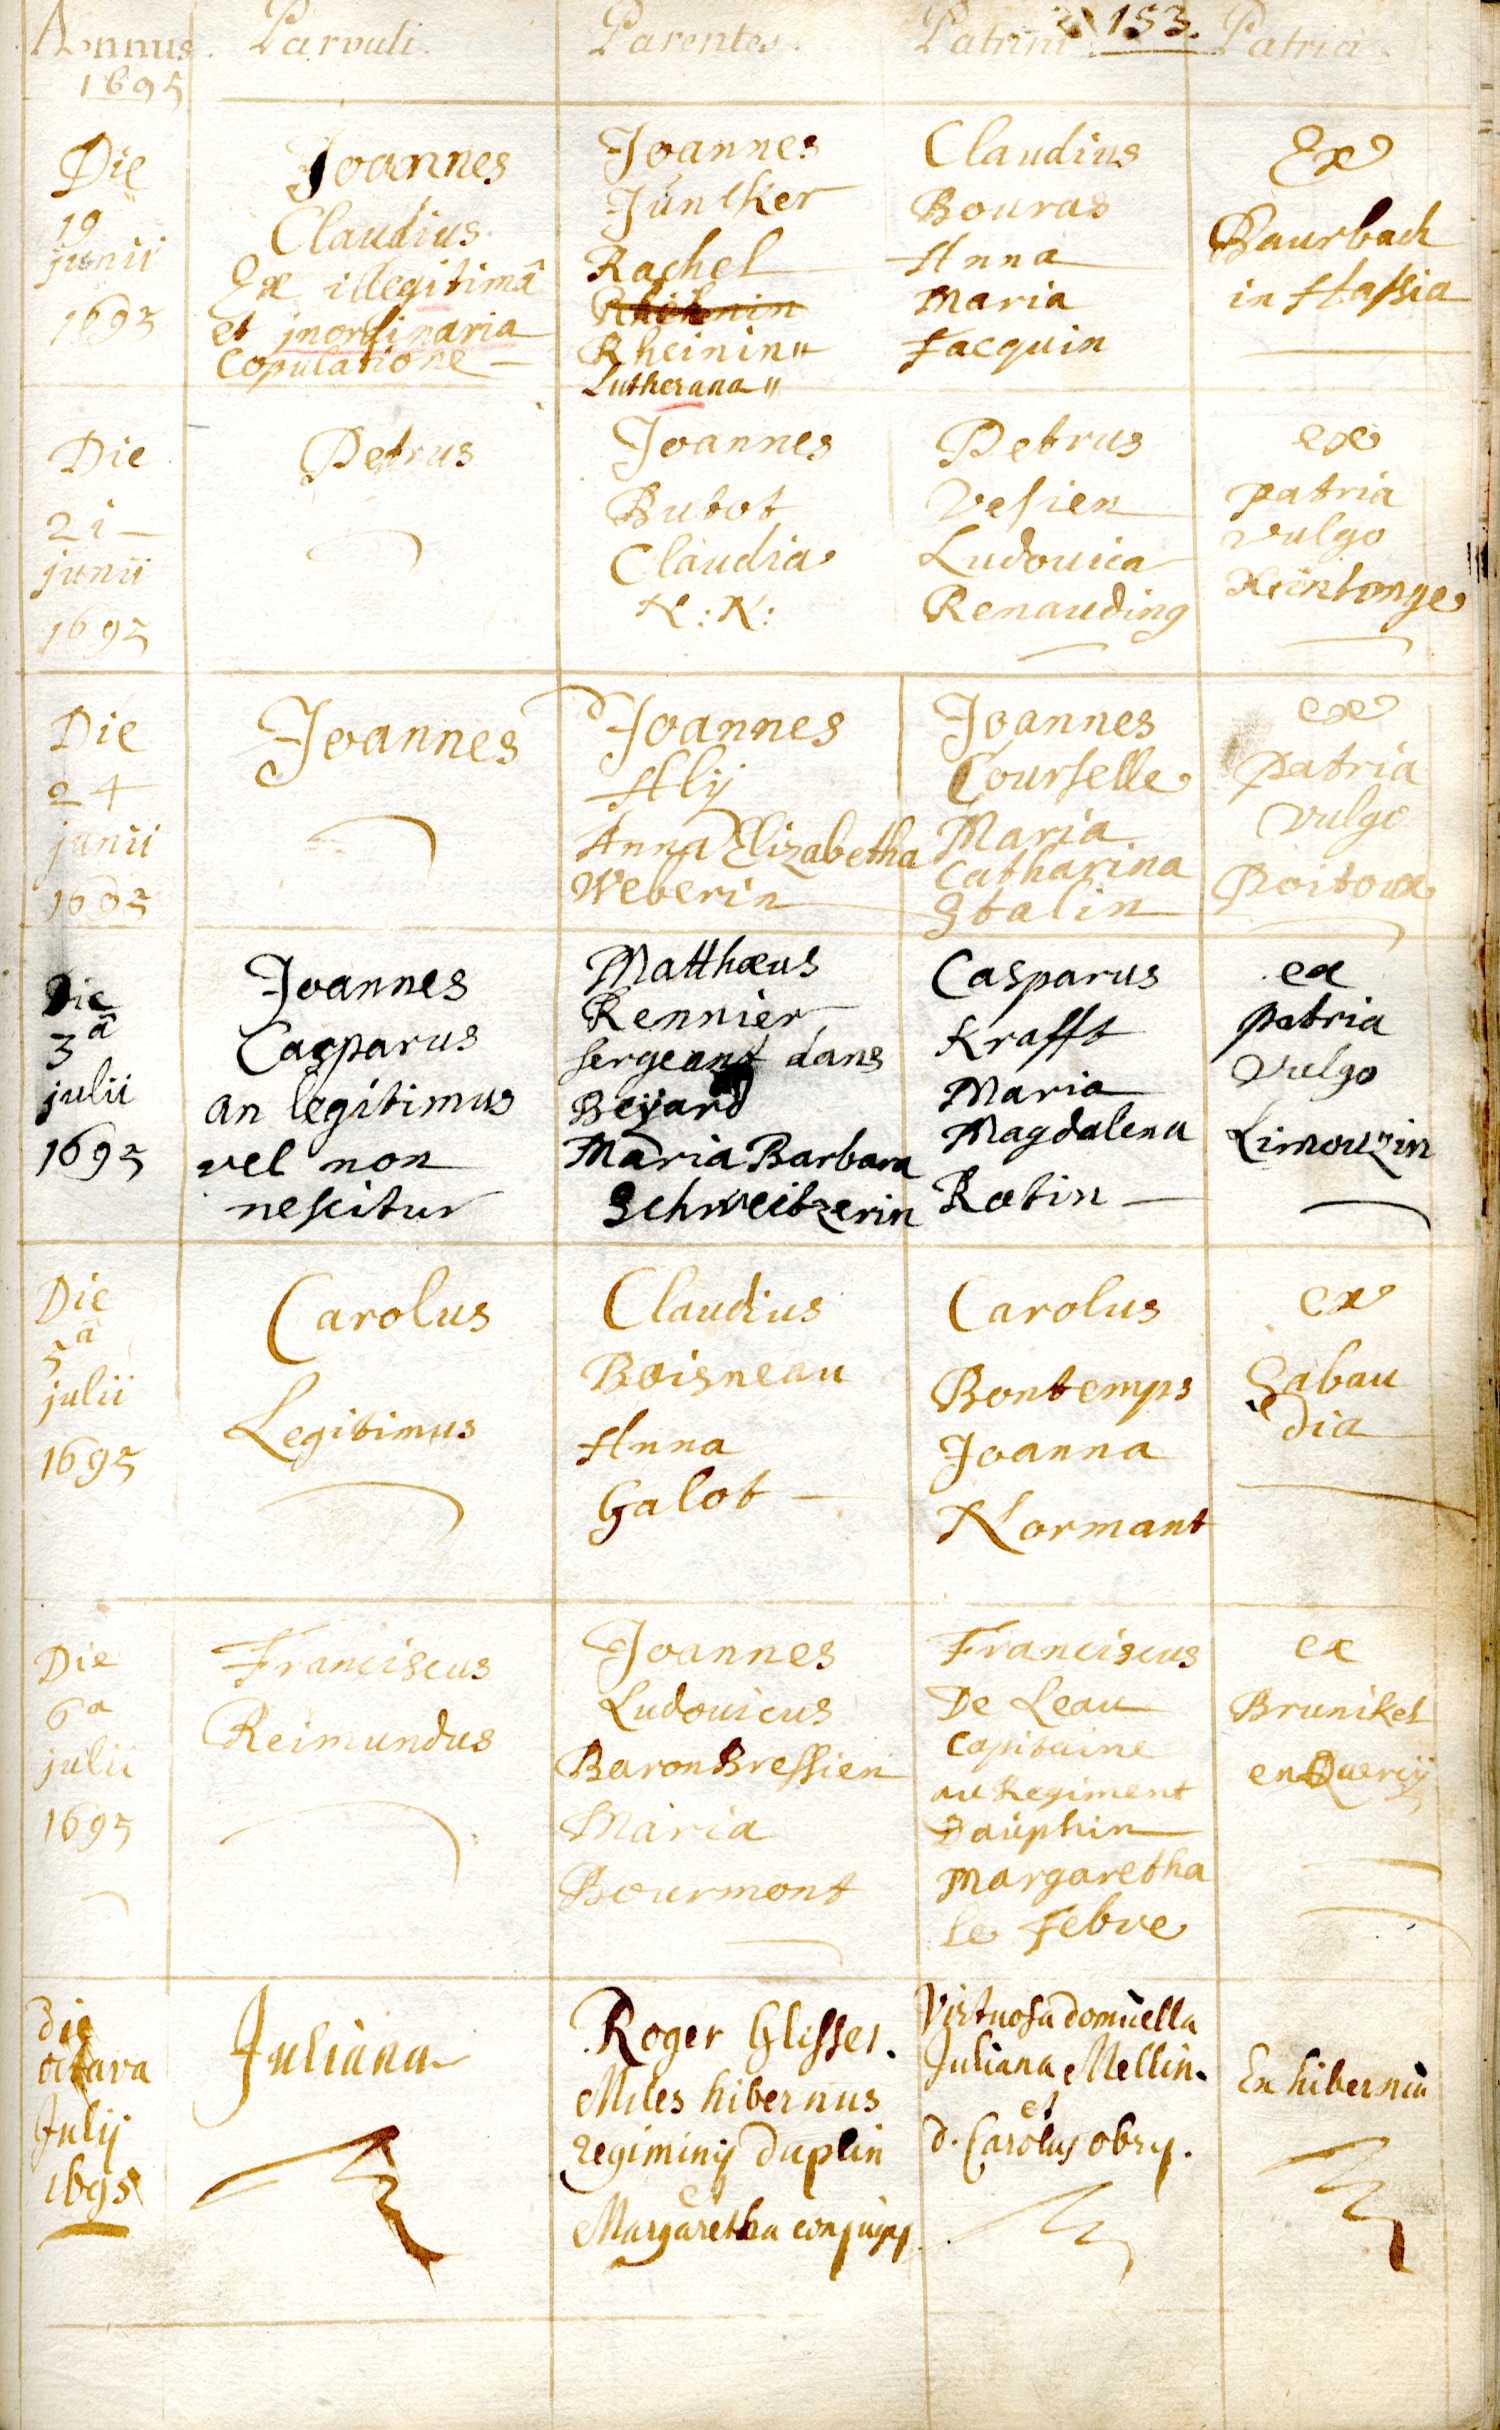 153.
Annus. Parvuli. Parentes. Patrini Patria
1695
Die
19
junii
1695
Joannes
Claudius
Ex illegitimâ
et inordinaria
Copulatione
Joannes
Juncker
Rachel
Rheinin
Lutherana
Claudius
Bouras
Anna
Maria
Jacquin
Ex
Baurbach
in Hassia
Die
21
junii
1695
Petrus
Joannes
Butot
Claudia
N: N:
Petrus
Vesien
Ludovica
Renauding
ex
patria
vulgo
Xeintonge
Die
24
junii
1695
Joannes
Joannes
Aly
Anna Elizabetha
Weberin
Joannes
Courselle
Maria
Catharina
Stalin
ex
patria
vulgo
Poitoux
Die
3â
julii
1695
Joannes
Casparus
an legitimus
vel non
nescitur
Matthæus
Rennier
sergeant dans
Beyard
Maria Barbara
Schweitzerin
Casparus
Krafft
Maria
Magdalena
Rotin
ex
patria
vulgo
Limouzin
Die
5â
julii
1695
Carolus
Legitimus
Claudius
Boisneau
Anna
Galot
Carolus
Bontemps
Joanna
Normant
ex
Sabau
dia
Die
6a
julii
1695
Franciscus
Reimundus
Joannes
Ludovicus
Baron Bressien
Maria
Bourmont
Franciscus
De Leau
Capitaine
au Regiment
Dauphin
Margaretha
le Febve
ex
Brunikel
en Quercÿ
die
octava
Julij
1695
Juliana
Roger Glisser.
Miles hibernus
regiminis duplin
et
Margaretha conjuges
Virtuosa domicella
Juliana Mellin.
et
d. Carolus obry.
Ex hibernia